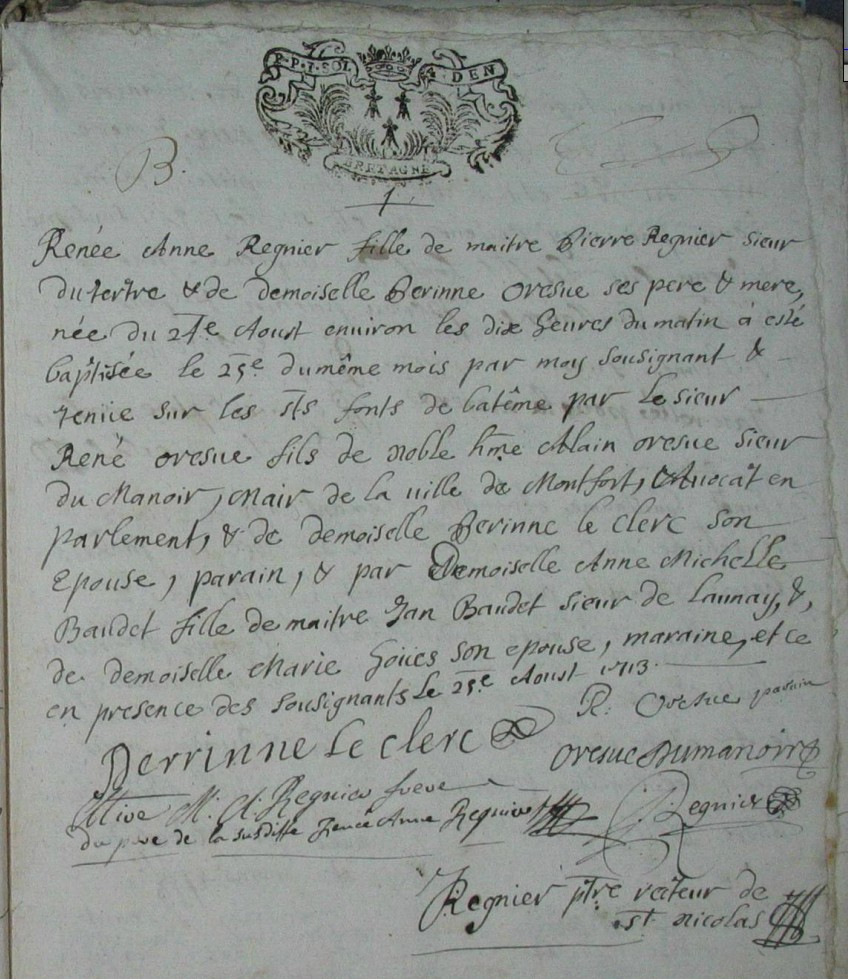 P·P·T·SOL 4·DEN
BRETAGNE
B.
1
Renée Anne Regnier fille de maitre Pierre Regnier sieur
du tertre & de demoiselle Perinne oresue ses pere & mere,
née du 24e Aoust environ les dix heures du matin à esté
baptisée le 25e du même mois par moy sousignant &
tenüe sur les sts fonts de batême par Le sieur
René oresue fils de noble hme Alain oresue sieur
du Manoir, Mair de la ville de Montfort, Avocat en
parlement, & de demoiselle Perinne le clerc son
Epouse, parain, & par Demoiselle Anne Michelle
Baudet fille de maitre Jan Baudet sieur de Launay, &,
de demoiselle Marie hoües son epouse, maraine, et ce
en presence des sousignants Le 25e Aoust 1713.
R. Oresue parain
Perrinne Le clerc
oresue Dumanoir
Regnier frere
du pere de la susditte Renée Anne Regnier
Regnier
Regnier ptre recteur de
st nicolas